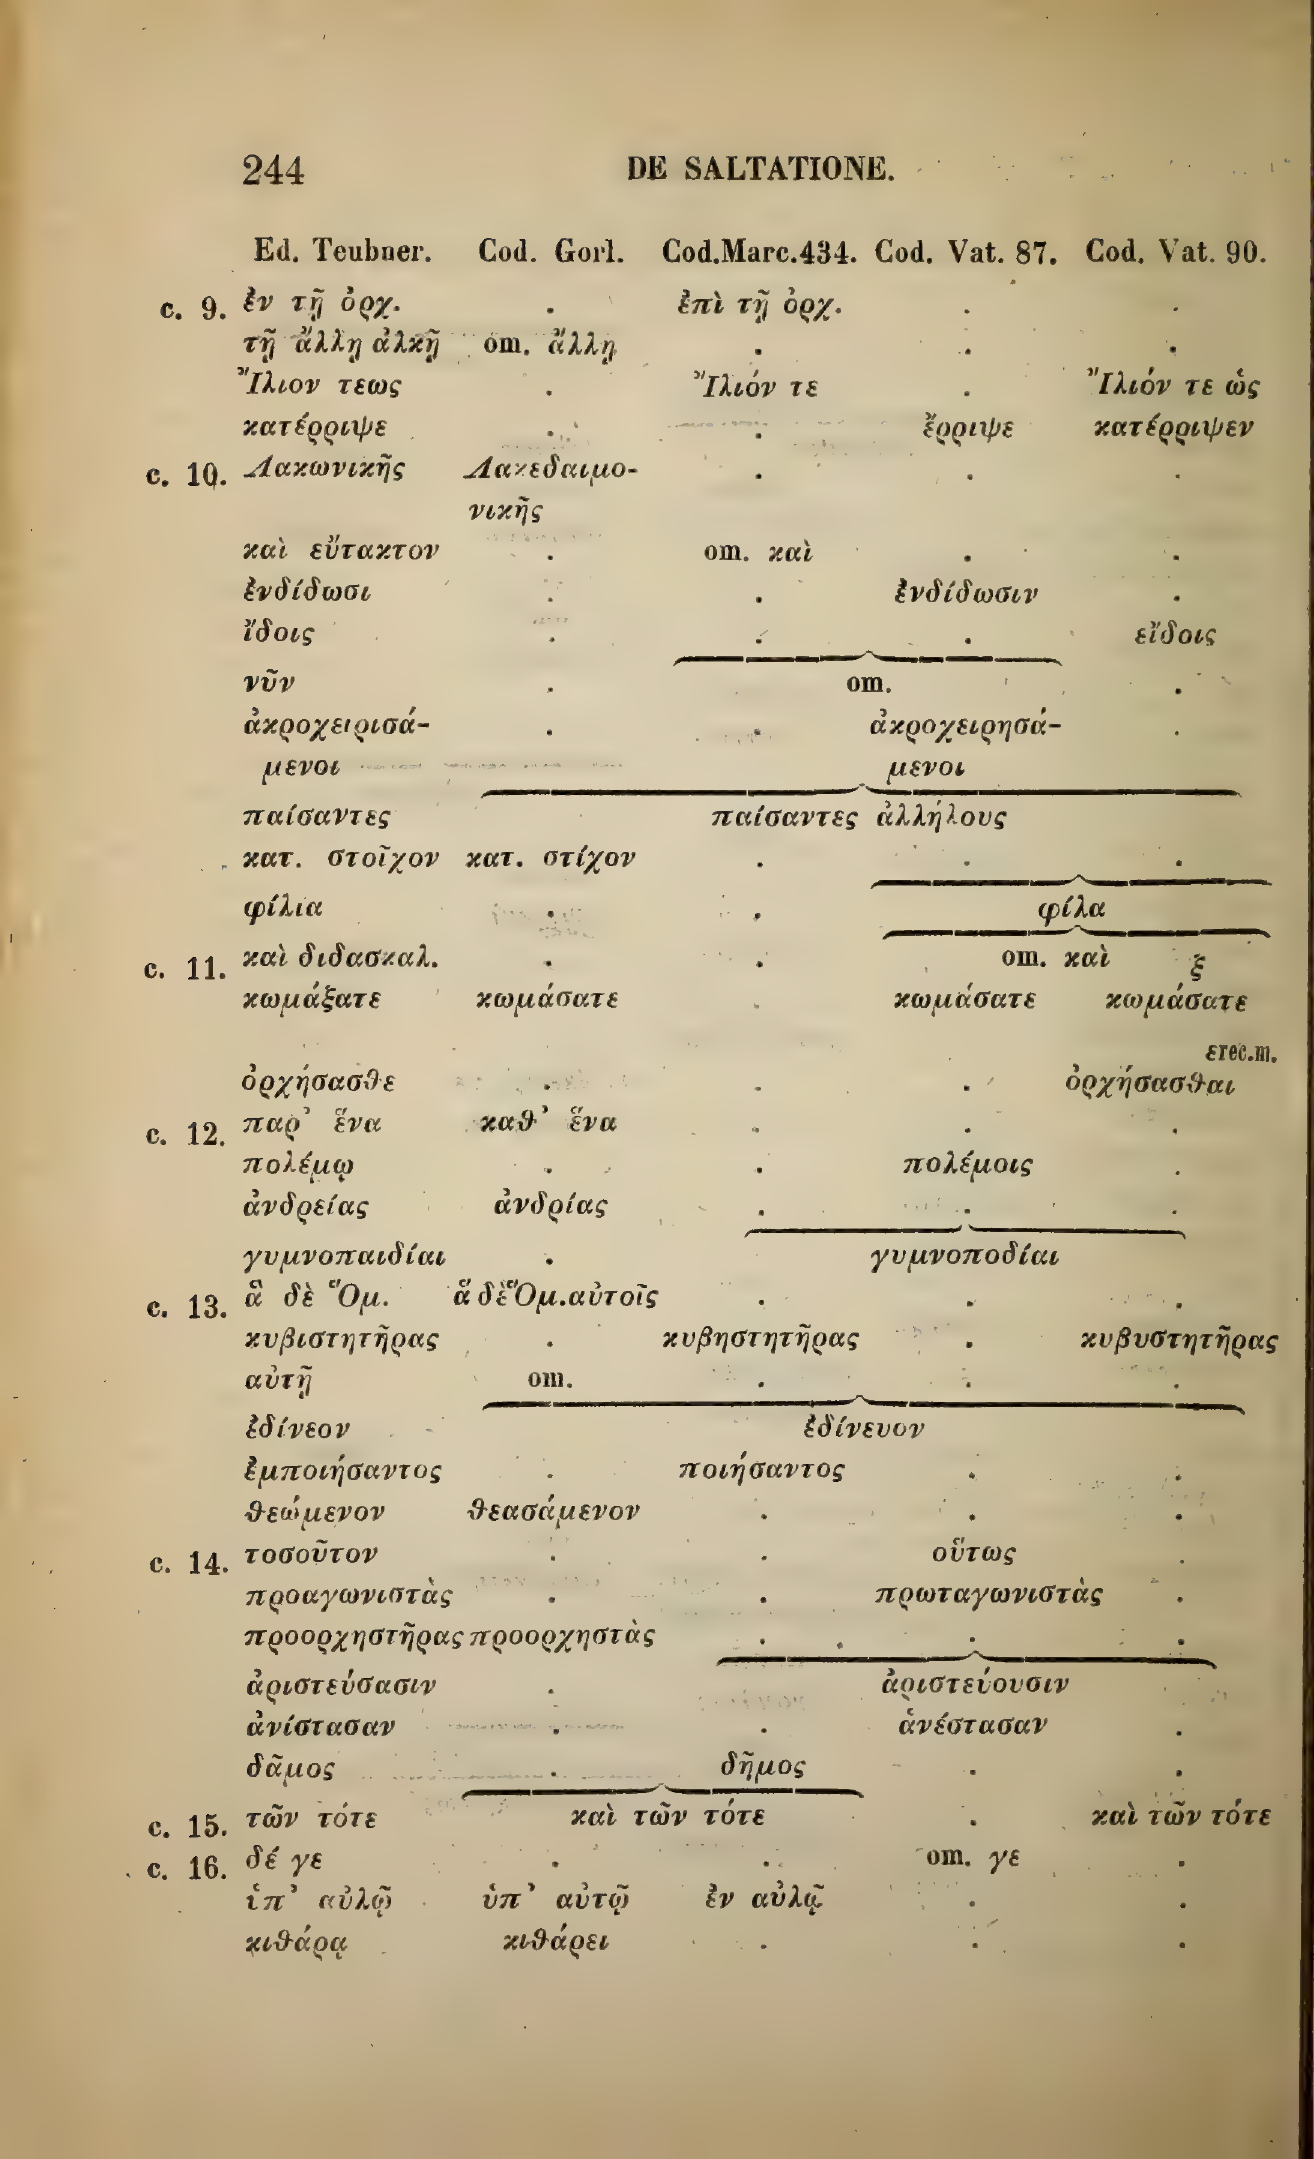 244 DE SALTATIONE.
Ed. Teubner. Cod. Gorl. Cod.Marc.434. Cod. Vat. 87. Cod. Vat. 90.
c. 9. ἐν τῇ ὀρχ. . ἐπὶ τῇ ὀρχ. . .
τῇ ἄλλῃ ἀλκῇ om. ἄλλῃ . . .
Ἴλιον τεως . Ἴλιόν τε . Ἴλιόν τε ὡς
κατέρριψε . . ἔρριψε κατέρριψεν
c. 10. Λακωνικῆς Λακεδαιμο- . . .
νικῆς
καὶ εὔτακτον . om. καὶ . .
ἐνδίδωσι . . ἐνδίδωσιν .
ἴδοις . . . εἴδοις
νῦν . om. .
ἀκροχειρισά- . . ἀκροχειρησά- .
μενοι μενοι
παίσαντες παίσαντες ἀλλήλους
κατ. στοῖχον κατ. στίχον . . .
φίλια . . φίλα
c. 11. καὶ διδασκαλ. . . om. καὶ ξ
κωμάξατε κωμάσατε . κωμάσατε κωμάσατε
εrec.m.
ὀρχήσασθε . . . ὀρχήσασθαι
c. 12. παρ’ ἕνα καθ’ ἕνα . . .
πολέμῳ . . πολέμοις .
ἀνδρείας ἀνδρίας . . .
γυμνοπαιδίαι . γυμνοποδίαι
c. 13. ἃ δὲ Ὅμ. ἅ δὲ Ὅμ.αὐτοῖς . . .
κυβιστητῆρας . κυβηστητῆρας . κυβυστητῆρας
αὐτῇ om. . . .
ἐδίνεον ἐδίνευον
ἐμποιήσαντος . ποιήσαντος . .
θεώμενον θεασάμενον . . .
c. 14. τοσοῦτον . . οὕτως .
προαγωνιστὰς . . πρωταγωνιστὰς .
προορχηστῆρας προορχηστὰς . . .
ἀριστεύσασιν . ἀριστεύουσιν
ἀνίστασαν . . ἀνέστασαν .
δᾶμος . δῆμος . .
c. 15. τῶν τότε καὶ τῶν τότε . καὶ τῶν τότε
c. 16. δέ γε . . om. γε .
ὑπ’ αὐλῷ ὑπ’ αὐτῷ ἐν αὐλῷ . .
κιθάρᾳ κιθάρει . . .